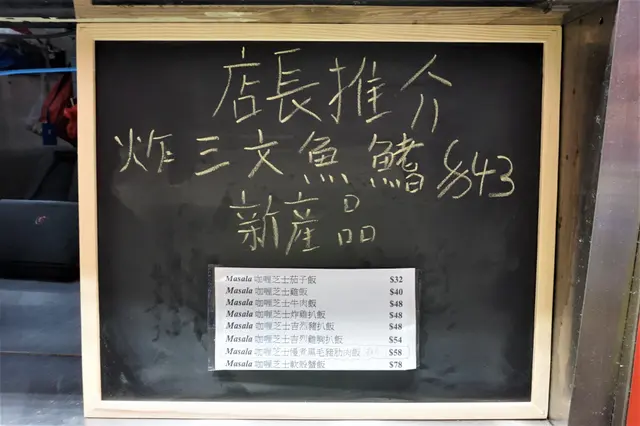 店長推介
炸三文魚鰭 $43
新產品
Masala 咖喱芝士茄子飯 $32
Masala 咖喱芝士雞飯 $40
Masala 咖喱芝士牛肉飯 $48
Masala 咖喱芝士炸雞扒飯 $48
Masala 咖喱芝士吉烈豬扒飯 $48
Masala 咖喱芝士吉烈雞胸扒飯 $54
Masala 咖喱芝士慢煮黑毛豬肋肉飯 $58
Masala 咖喱芝士軟殼蟹飯 $78